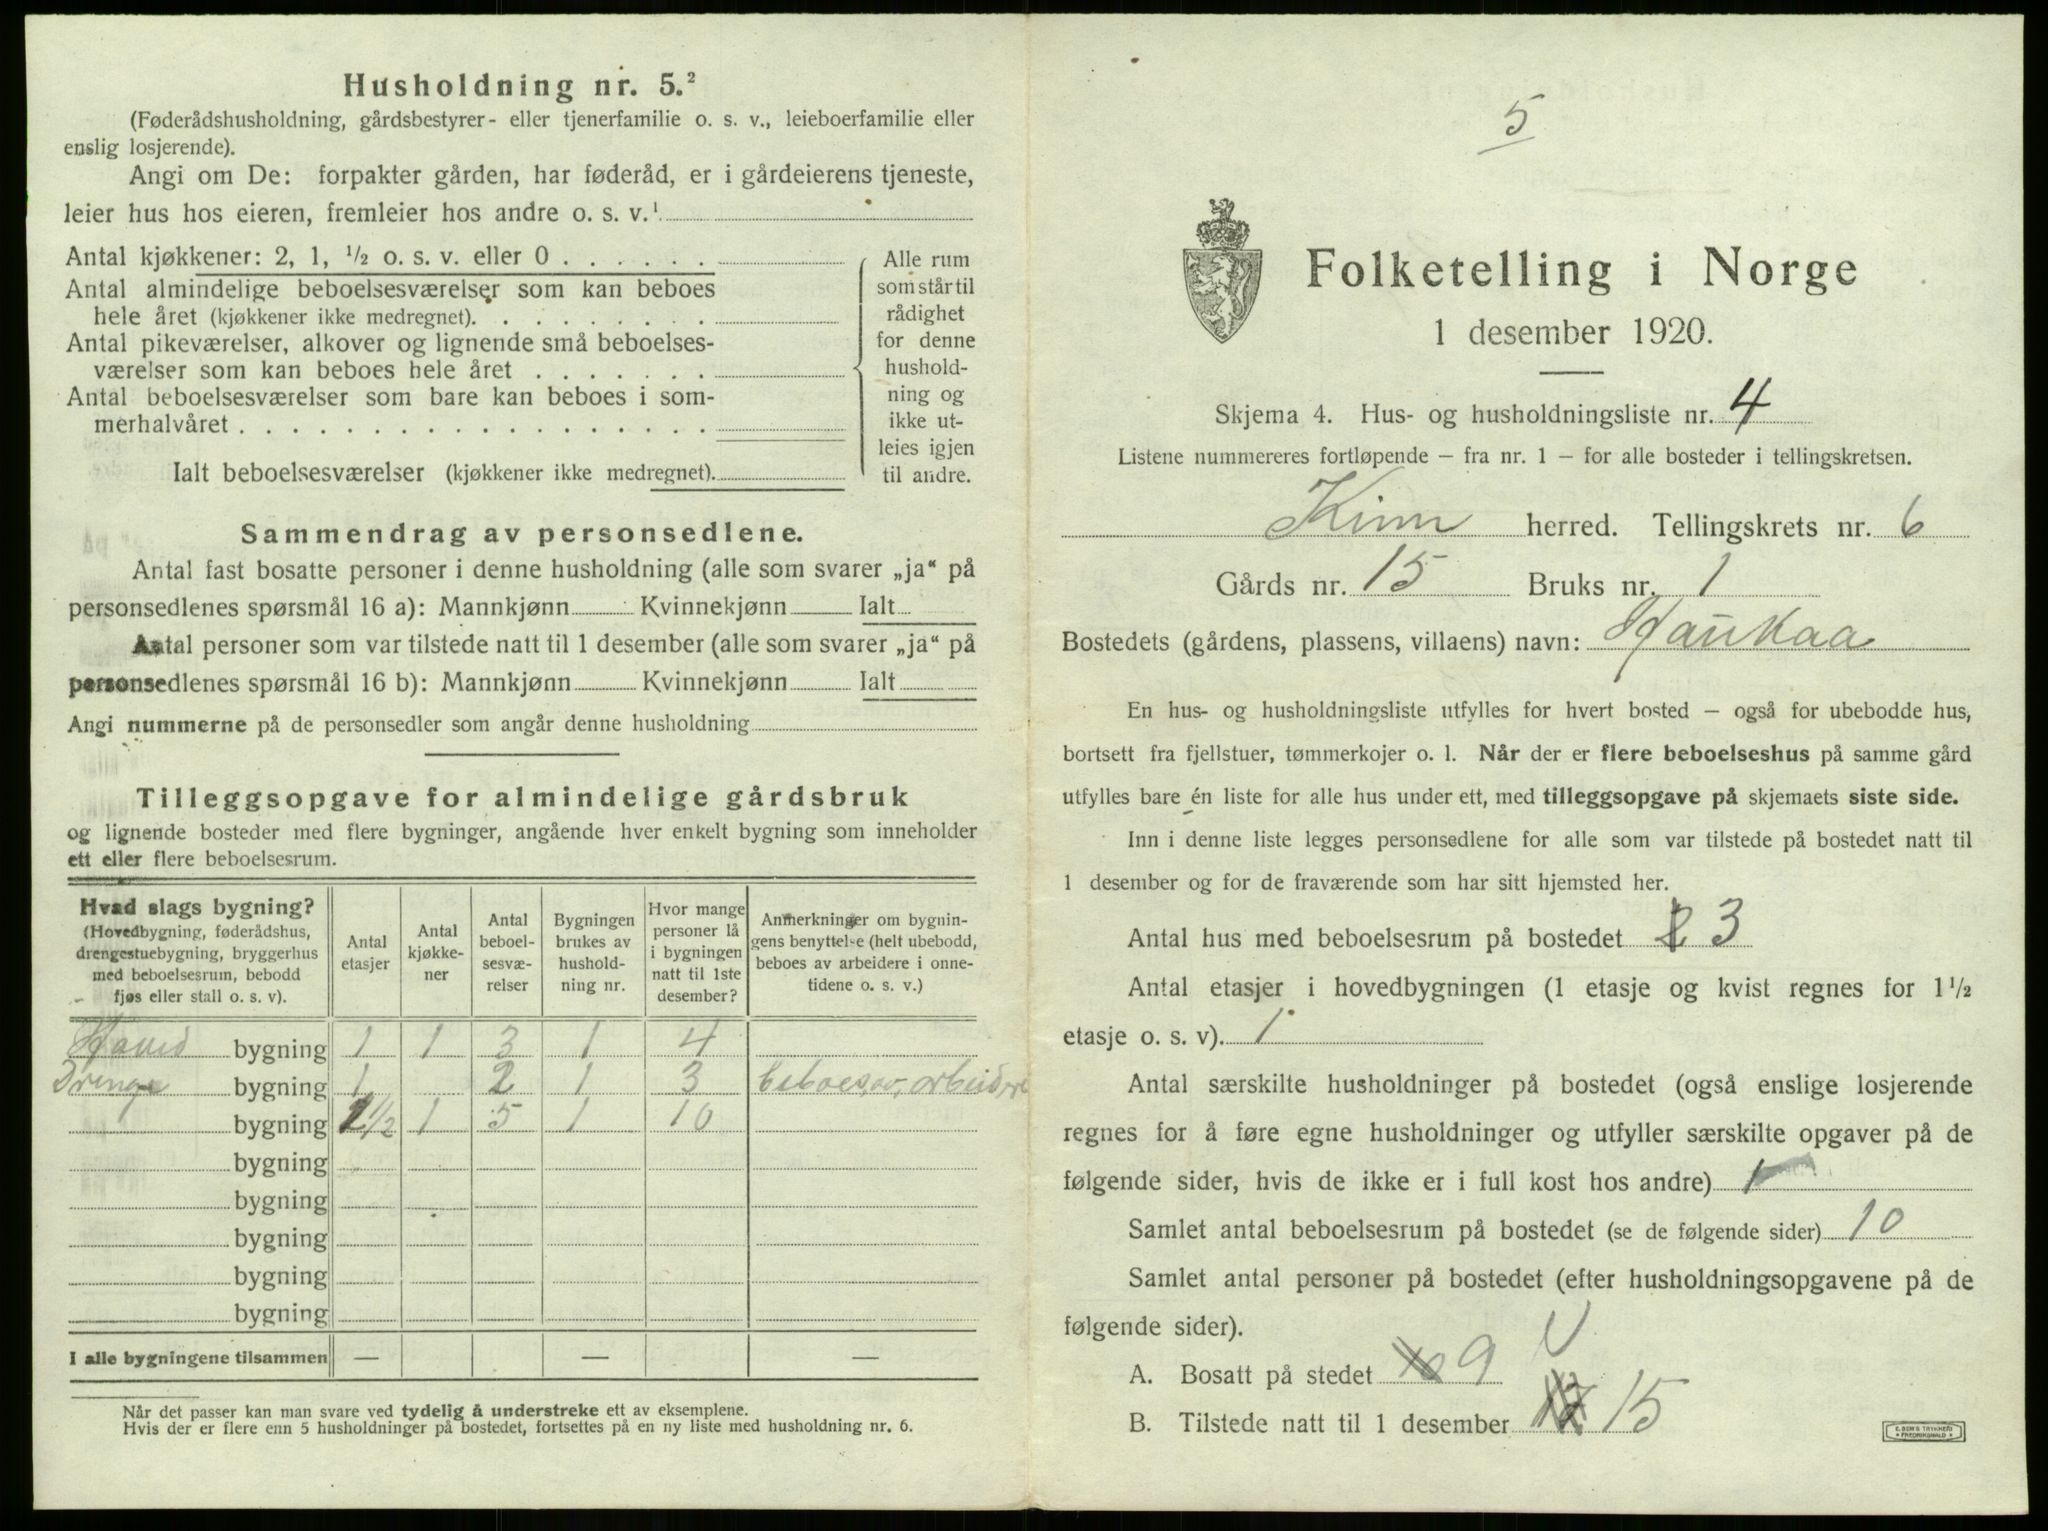 Husholdning nr. 5.²
(Føderådshusholdning, gårdsbestyrer- eller tjenerfamilie o. s. v., leieboerfamilie eller
enslig losjerende).
Angi om De: forpakter gården, har føderåd, er i gårdeierens tjeneste,
leier hus hos eieren, fremleier hos andre o. s. v.¹
Antal kjøkkener: 2, 1, ½ o. s. v. eller 0 . . . . . .
Antal almindelige beboelsesværelser som kan beboes
hele året (kjøkkener ikke medregnet). . . . . . . . .
Antal pikeværelser, alkover og lignende små beboelses-
værelser som kan beboes hele året . . . . . . .
Antal beboelsesværelser som bare kan beboes i som-
merhalvåret . . . . . . . . . . . . . . . . . .
Ialt beboelsesværelser (kjøkkener ikke medregnet).
Alle rum
som står til
rådighet
for denne
hushold-
ning og
ikke ut-
leies igjen
til andre.
Sammendrag av personsedlene.
Antal fast bosatte personer i denne husholdning (alle som svarer „ja“ på
personsedlenes spørsmål 16 a): Mannkjønn Kvinnekjønn Ialt
Antal personer som var tilstede natt til 1 desember (alle som svarer „ja“ på
personsedlenes spørsmål 16 b): Mannkjønn Kvinnekjønn Ialt
Angi nummerne på de personsedler som angår denne husholdning
Tilleggsopgave for almindelige gårdsbruk
og lignende bosteder med flere bygninger, angående hver enkelt bygning som inneholder
ett eller flere beboelsesrum.
Hvad slags bygning?
(Hovedbygning, føderådshus,
drengestuebygning, bryggerhus
med beboelsesrum, bebodd
fjøs eller stall o. s. v).
Antal
etasjer
Antal
kjøkke-
ner
Antal
beboel-
sesvæ-
relser
Bygningen
brukes av
hushold-
ning nr.
Hvor mange
personer lå
i bygningen
natt til 1ste
desember?
Anmerkninger om bygnin-
gens benyttelse (helt ubebodd,
beboes av arbeidere i onne-
tidene o. s. v.)
Hoved bygning 1 1 3 1 4
Drenge bygning 1 2 1 3 beboes av arbeidere
bygning 1½ 1 5 1 10
bygning
bygning
bygning
bygning
bygning
I alle bygningene tilsammen — — —
Når det passer kan man svare ved tydelig å understreke ett av eksemplene.
Hvis der er flere enn 5 husholdninger på bostedet, fortsettes på en ny liste med husholdning nr. 6.
5
Folketelling i Norge
1 desember 1920.
Skjema 4. Hus- og husholdningsliste nr. 4
Listene nummereres fortløpende – fra nr. 1 – for alle bosteder i tellingskretsen.
Kinn herred. Tellingskrets nr. 6
Gårds nr. 15 Bruks nr. 1
Bostedets (gårdens, plassens, villaens) navn: Haukaa
En hus- og husholdningsliste utfylles for hvert bosted – også for ubebodde hus,
bortsett fra fjellstuer, tømmerkojer o. l. Når der er flere beboelseshus på samme gård
utfylles bare én liste for alle hus under ett, med tilleggsopgave på skjemaets siste side.
Inn i denne liste legges personsedlene for alle som var tilstede på bostedet natt til
1 desember og for de fraværende som har sitt hjemsted her.
Antal hus med beboelsesrum på bostedet 3
Antal etasjer i hovedbygningen (1 etasje og kvist regnes for 1½
etasje o. s. v). 1
Antal særskilte husholdninger på bostedet (også enslige losjerende
regnes for å føre egne husholdninger og utfyller særskilte opgaver på de
følgende sider, hvis de ikke er i full kost hos andre) 1
Samlet antal beboelsesrum på bostedet (se de følgende sider) 10
Samlet antal personer på bostedet (efter husholdningsopgavene på de
følgende sider).
A. Bosatt på stedet 9
B. Tilstede natt til 1 desember 15